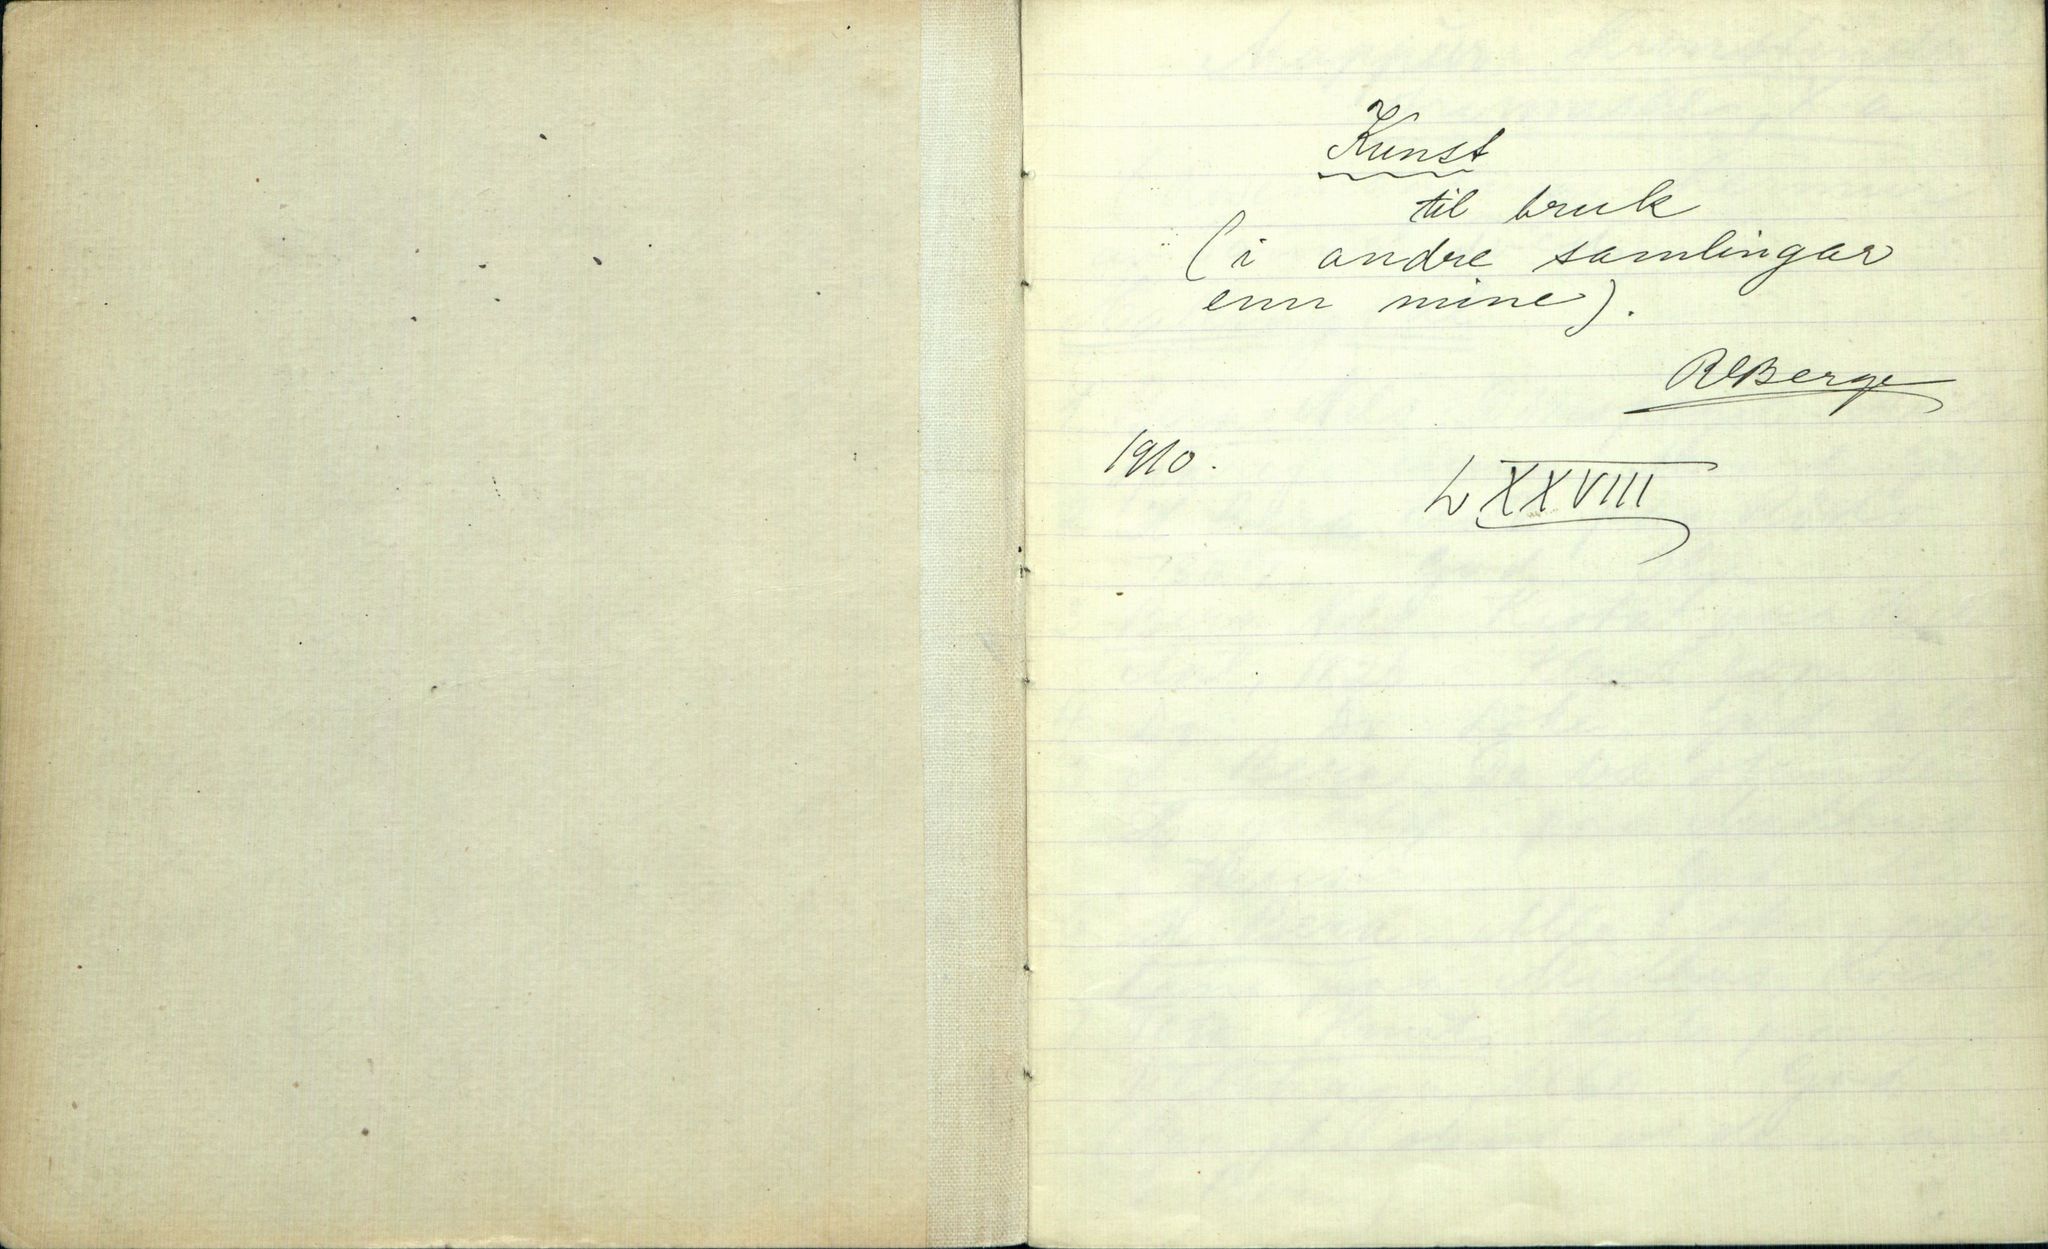 Kunst
til bruk
(i andre samlingar
enn mine).
RBerge
1910.
LXXVIII